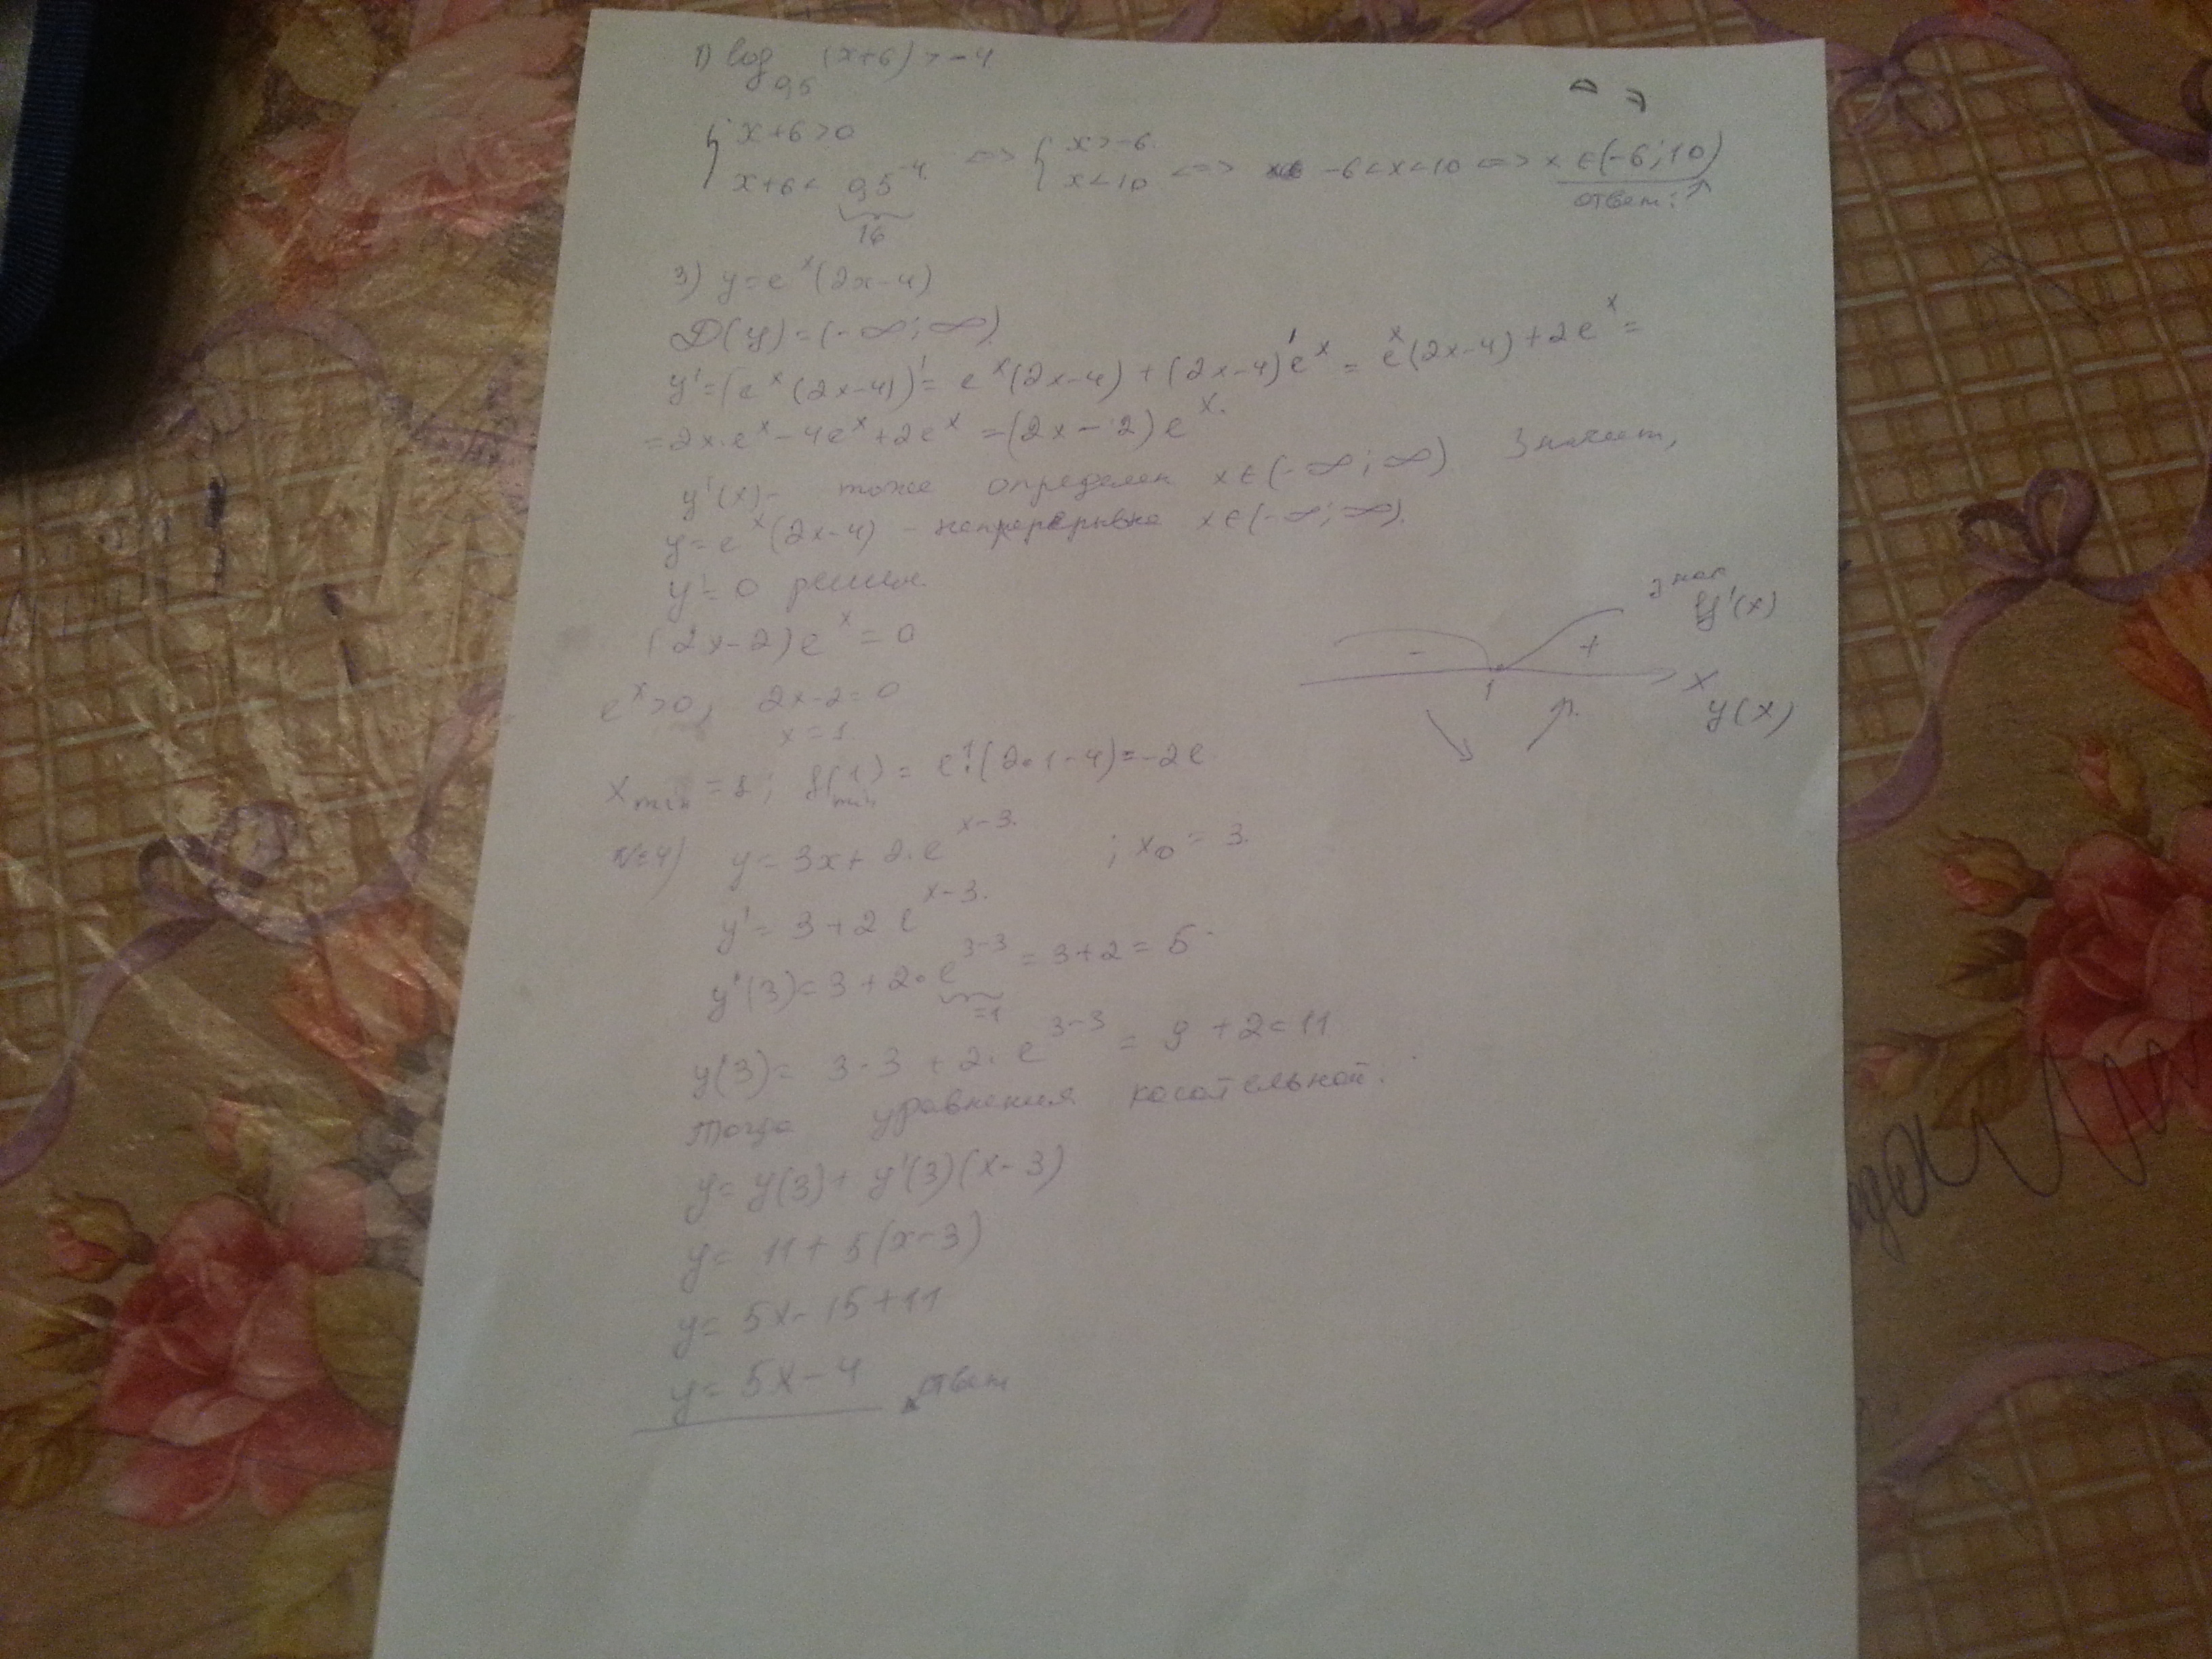 1) log₀,₅ (x+6) > -4
{ x+6>0
x+6 < 0,5⁻⁴ <=> { x>-6 x<10 <=> -6<x<10 <=> x∈(-6;10)
16 ответ:
3) y=eˣ(2x-4)
D(y)=(-∞;∞)
y'=(eˣ(2x-4))'= eˣ(2x-4)+(2x-4)'eˣ = eˣ(2x-4)+2eˣ=
=2x·eˣ-4eˣ+2eˣ=(2x-2)eˣ.
y'(x)- тоже определен x∈(-∞;∞) Значит,
y=eˣ(2x-4) - x∈(-∞;∞).
y'=0 решим.
(2x-2)eˣ=0
eˣ>0, 2x-2=0
x=1.
знак y'(x)
- +
1 x
y(x)
xmin=1; f(1)min= e¹·(2·1-4)=-2e
№4) y=3x+2·eˣ⁻³ ; x₀=3.
y'=3+2eˣ⁻³.
y'(3)=3+2·e³⁻³=3+2=5
=1
y(3)=3·3+2·e³⁻³=9+2=11
Тогда уравнения касательной:
y=y(3)+y'(3)(x-3)
y=11+5(x-3)
y=5x-15+11
y=5x-4 ответ